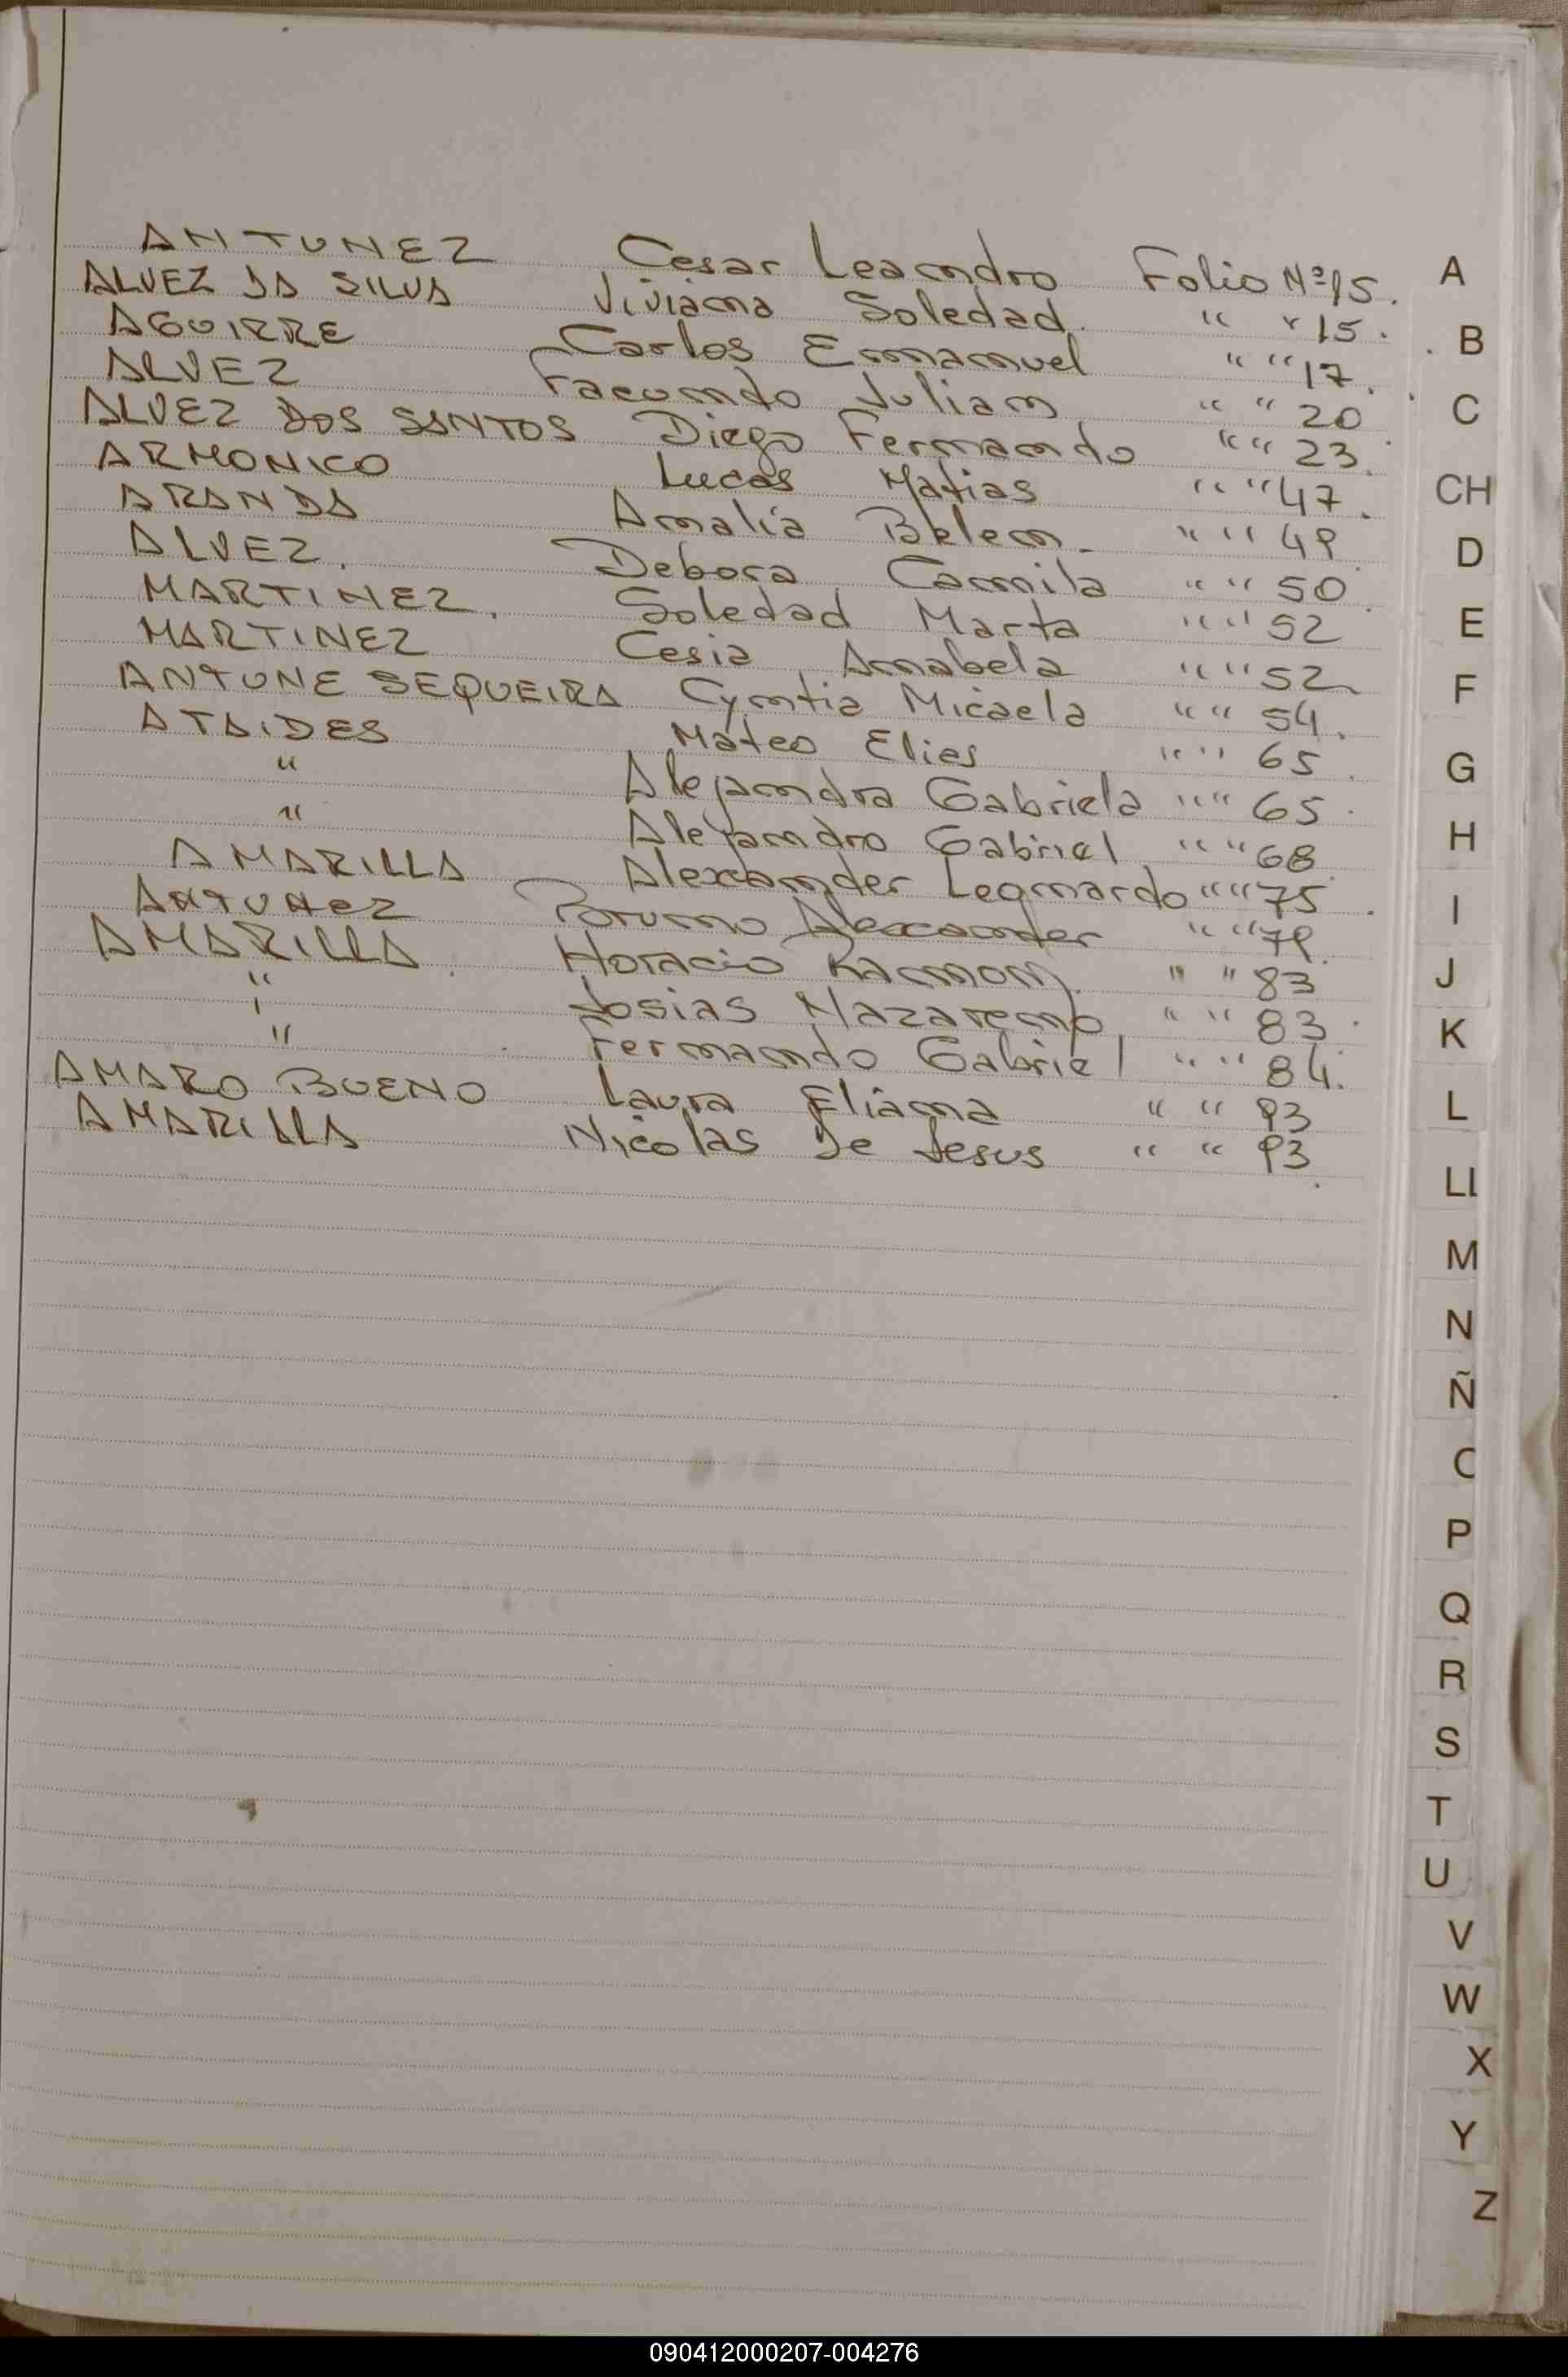 ANTUNEZ Cesar Leandro Folio Nº 15.
ALVEZ DA SILVA Viviana Soledad. " " 15.
AGUIRRE Carlos Emanuel " " 17.
ALVEZ Facundo Julian " " 20
ALVEZ DOS SANTOS Diego Fernando " " 23.
ARMONICO Lucas Matias " " 47.
ARANDA Amalia Belen. " " 49
ALVEZ. Debora Camila " " 50
MARTINEZ. Soledad Marta " " 52
MARTINEZ Cesia Anabela " " 52
ANTUNE SEQUEIRA Cyntia Micaela " " 54.
ATAIDES Mateo Elies " " 65.
" Alejandra Gabriela " " 65.
" Alejandro Gabriel " " 68
AMARILLA Alexander Leonardo " " 75.
ANTUNEZ Bruno Alexander " " 79
AMARILLA. Horacio Ramon. " " 83
" Josias Nazareno " " 83.
" Fernando Gabriel " " 84.
AMARO BUENO Laura Eliana " " 93
AMARILLA Nicolas De Jesus " " 93.
A
B
C
CH
D
E
F
G
H
I
J
K
L
LL
M
N
Ñ
O
P
Q
R
S
T
U
V
W
X
Y
Z
090412000207-004276